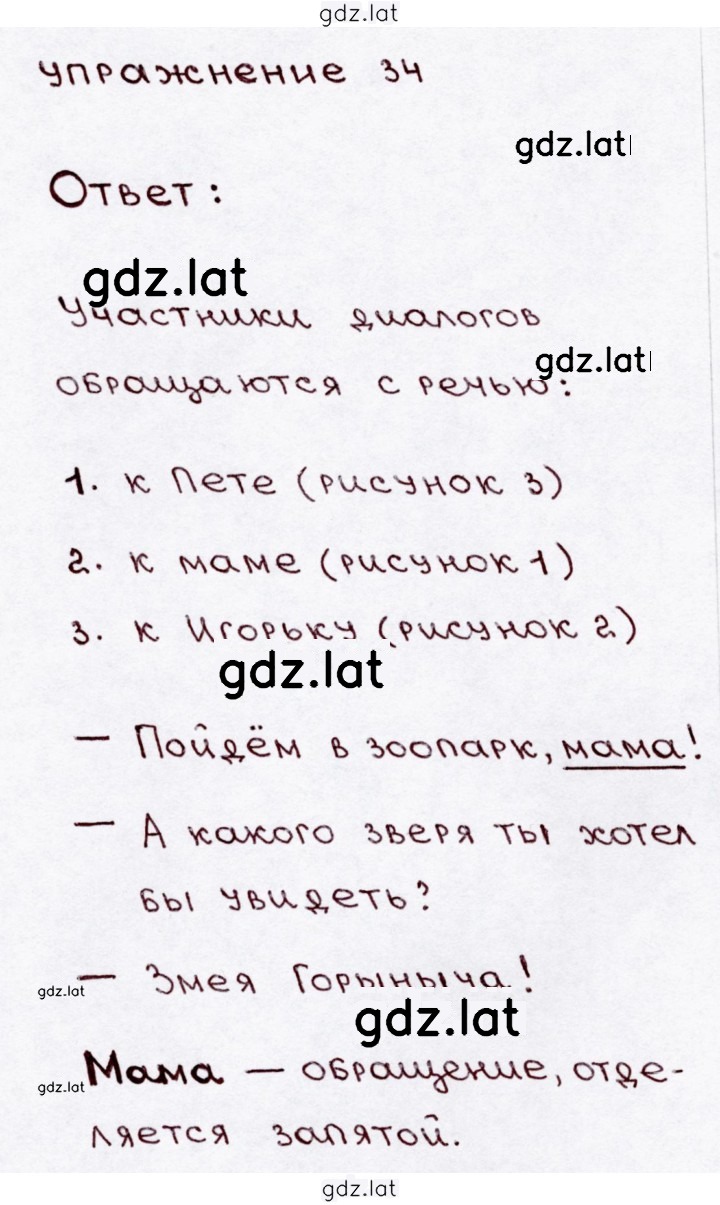 gdz.lat
упражнение 34
gdz.lat
Ответ:
gdz.lat
Участники диалогов
gdz.lat
обращаются с речью:
1. к Пете (рисунок 3)
2. к маме (рисунок 1)
3. к Игорьку (рисунок 2)
gdz.lat
— Пойдём в зоопарк, мама!
— А какого зверя ты хотел
бы увидеть?
— Змея Горыныча!
gdz.lat
gdz.lat
Мама — обращение, отде-
gdz.lat
ляется запятой.
gdz.lat